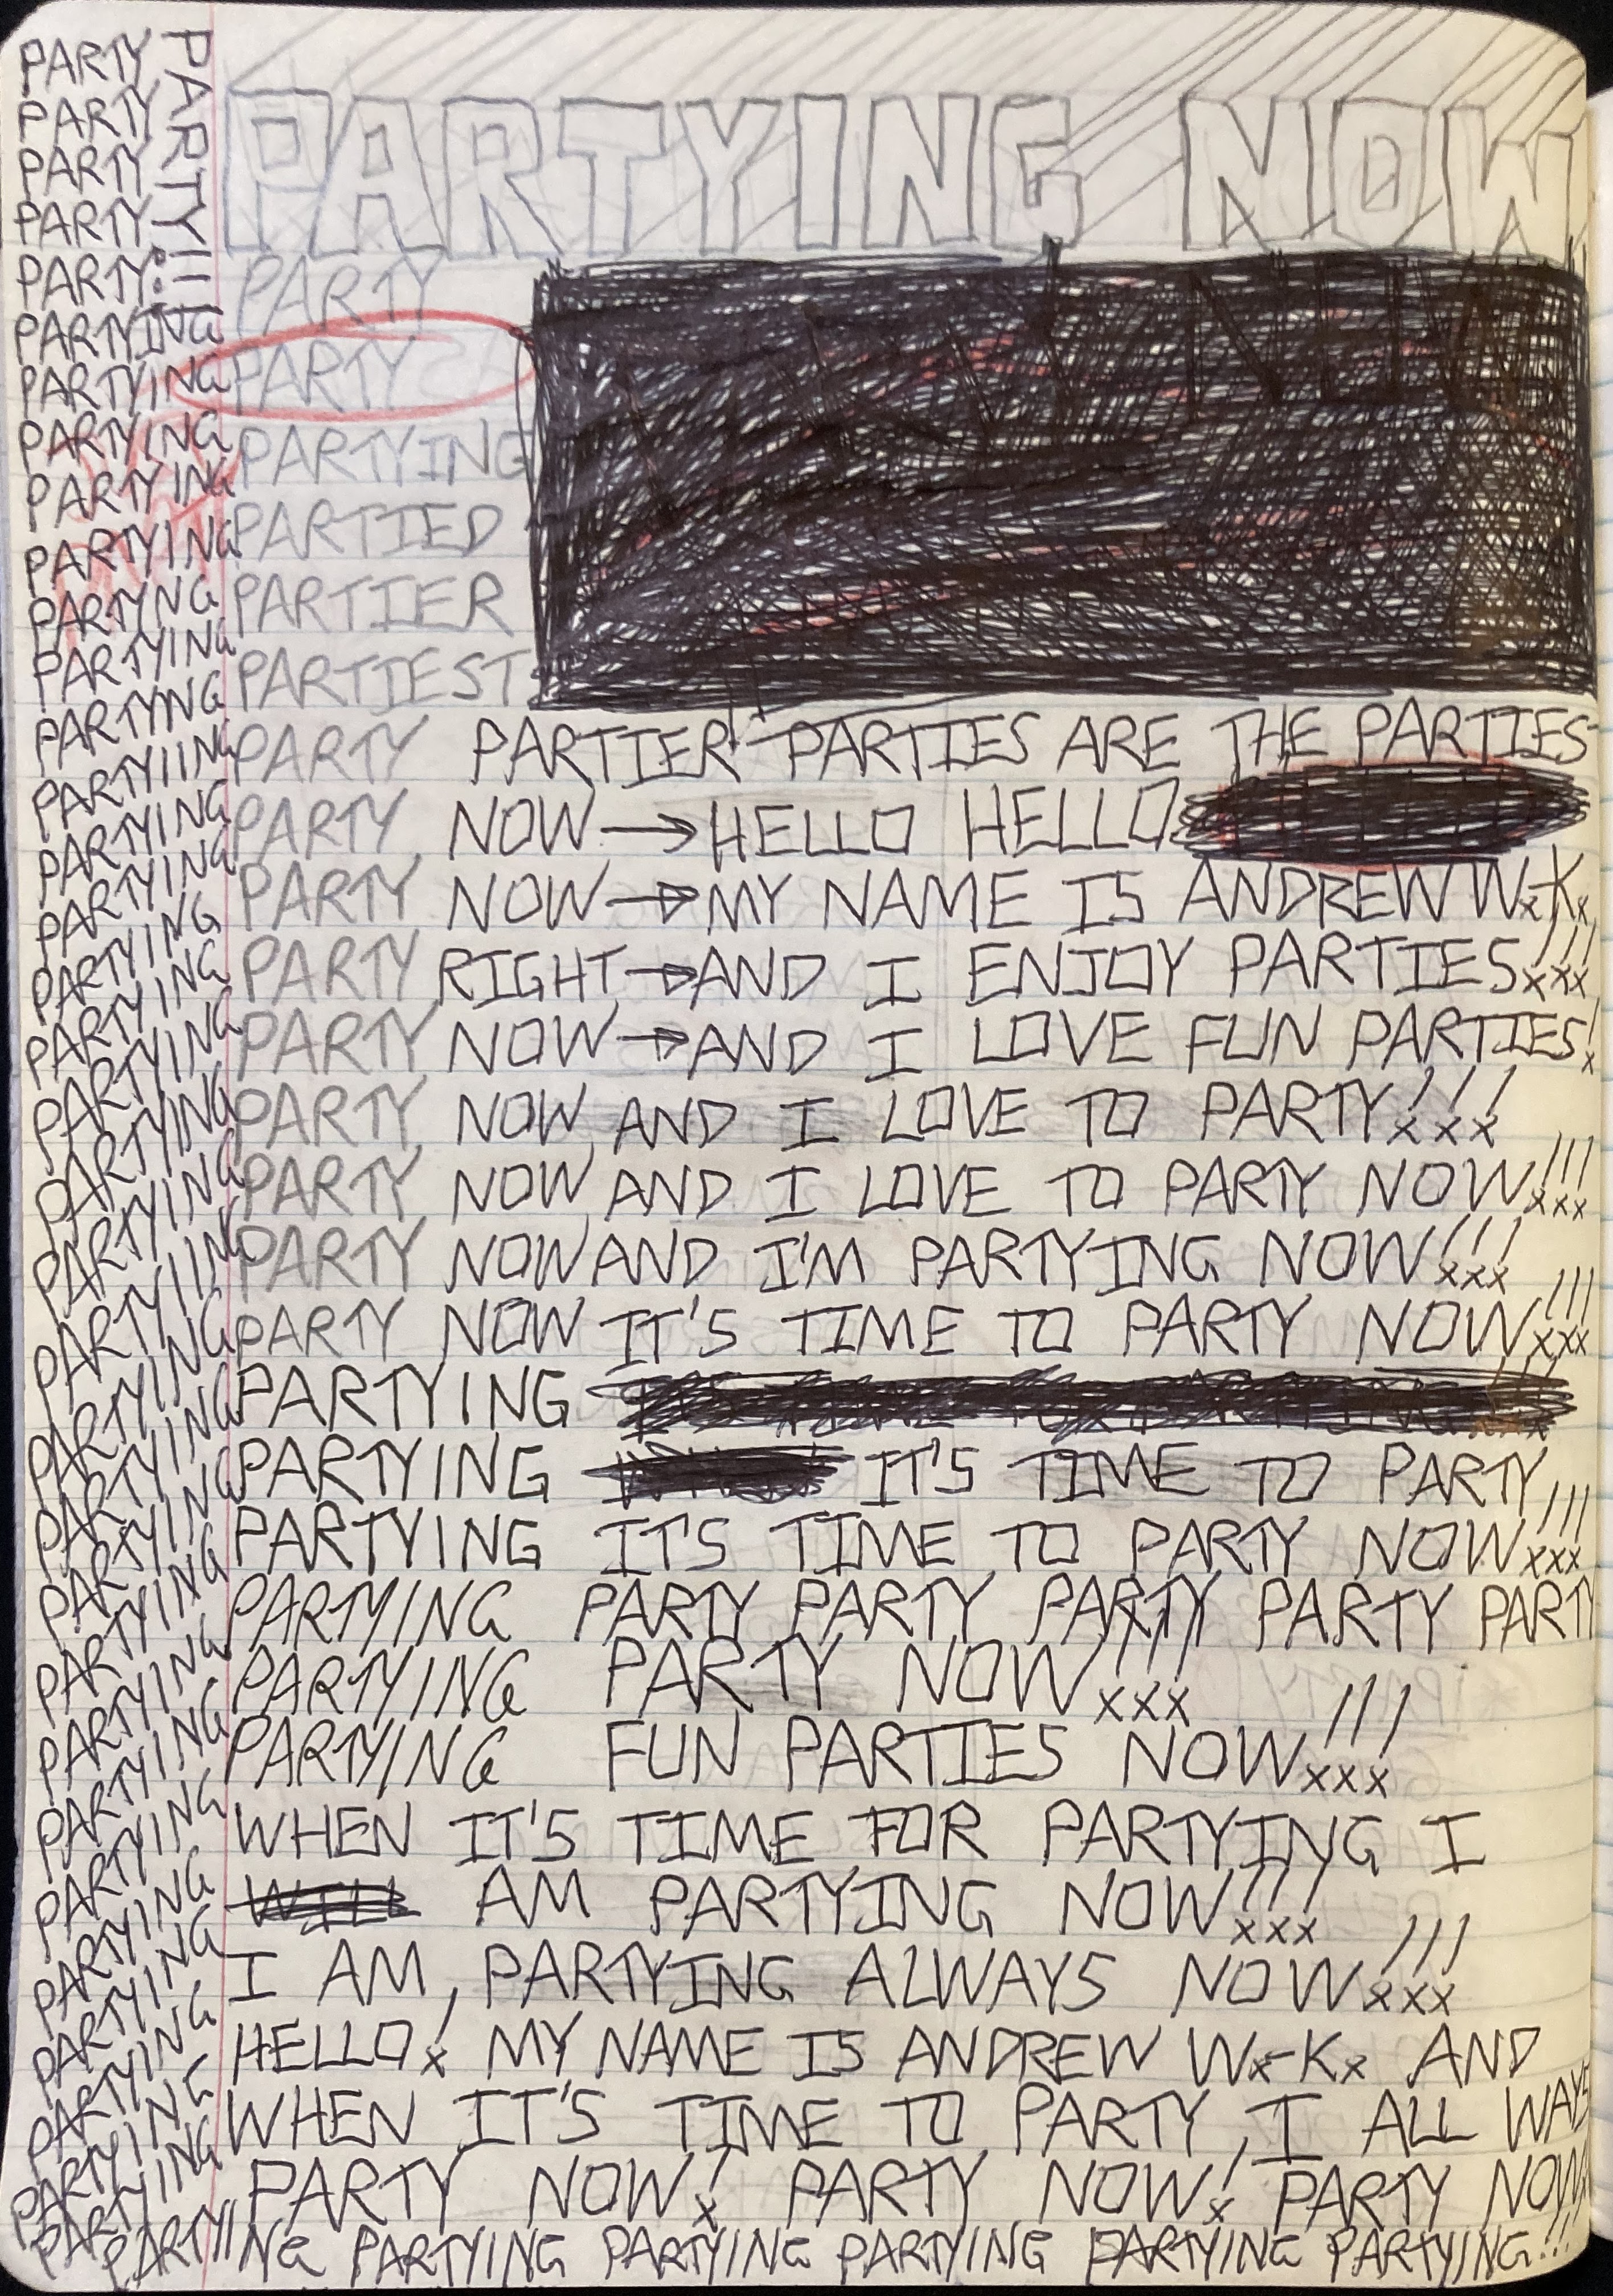 PARTYING NOW
PARTY!!!
PARTY
PARTY
PARTY
PARTY
PARTY
PARTYING
PARTYING
PARTYING
PARTYING
PARTYING
PARTYNG
PARTYING
PARTYNG
PARTYIING
PARTYING
PARTYING
PARTYING
PARTYING
PARTYING
PARTYING
PARTYING
PARTYIING
PARTYING
PARTYING
PARTYING
PARTYING
PARTYING
PARTYING
PARTYING
PARTYING
PARTYING
PARTYING
PARTYING
PARTYING
PARTYING
PARTYING
PARTYING
PARTY
PARTY
PARTYING
PARTIED
PARTIER
PARTIEST
PARTY PARTIER PARTIES ARE THE PARTIES
PARTY NOW → HELLO HELLO
PARTY NOW → MY NAME IS ANDREW W.K.
PARTY RIGHT → AND I ENJOY PARTIES!!!
PARTY NOW → AND I LOVE FUN PARTIES!
PARTY NOW AND I LOVE TO PARTY!!!
PARTY NOW AND I LOVE TO PARTY NOW!!!
PARTY NOW AND I'M PARTYING NOW!!!
PARTY NOW IT'S TIME TO PARTY NOW!!!
PARTYING
PARTYING IT'S TIME TO PARTY
PARTYING IT'S TIME TO PARTY NOW!!!
PARTYING PARTY PARTY PARTY PARTY PARTY
PARTYING PARTY NOW!!!
PARTYING FUN PARTIES NOW!!!
WHEN IT'S TIME FOR PARTYING I
WILL AM PARTYING NOW!!!
I AM PARTYING ALWAYS NOW!!!
HELLO! MY NAME IS ANDREW W.K. AND
WHEN IT'S TIME TO PARTY, I ALL WAYS
PARTY NOW! PARTY NOW! PARTY NOW!
PARTYING PARTYING PARTYING PARTYING PARTYING PARTYING!!!